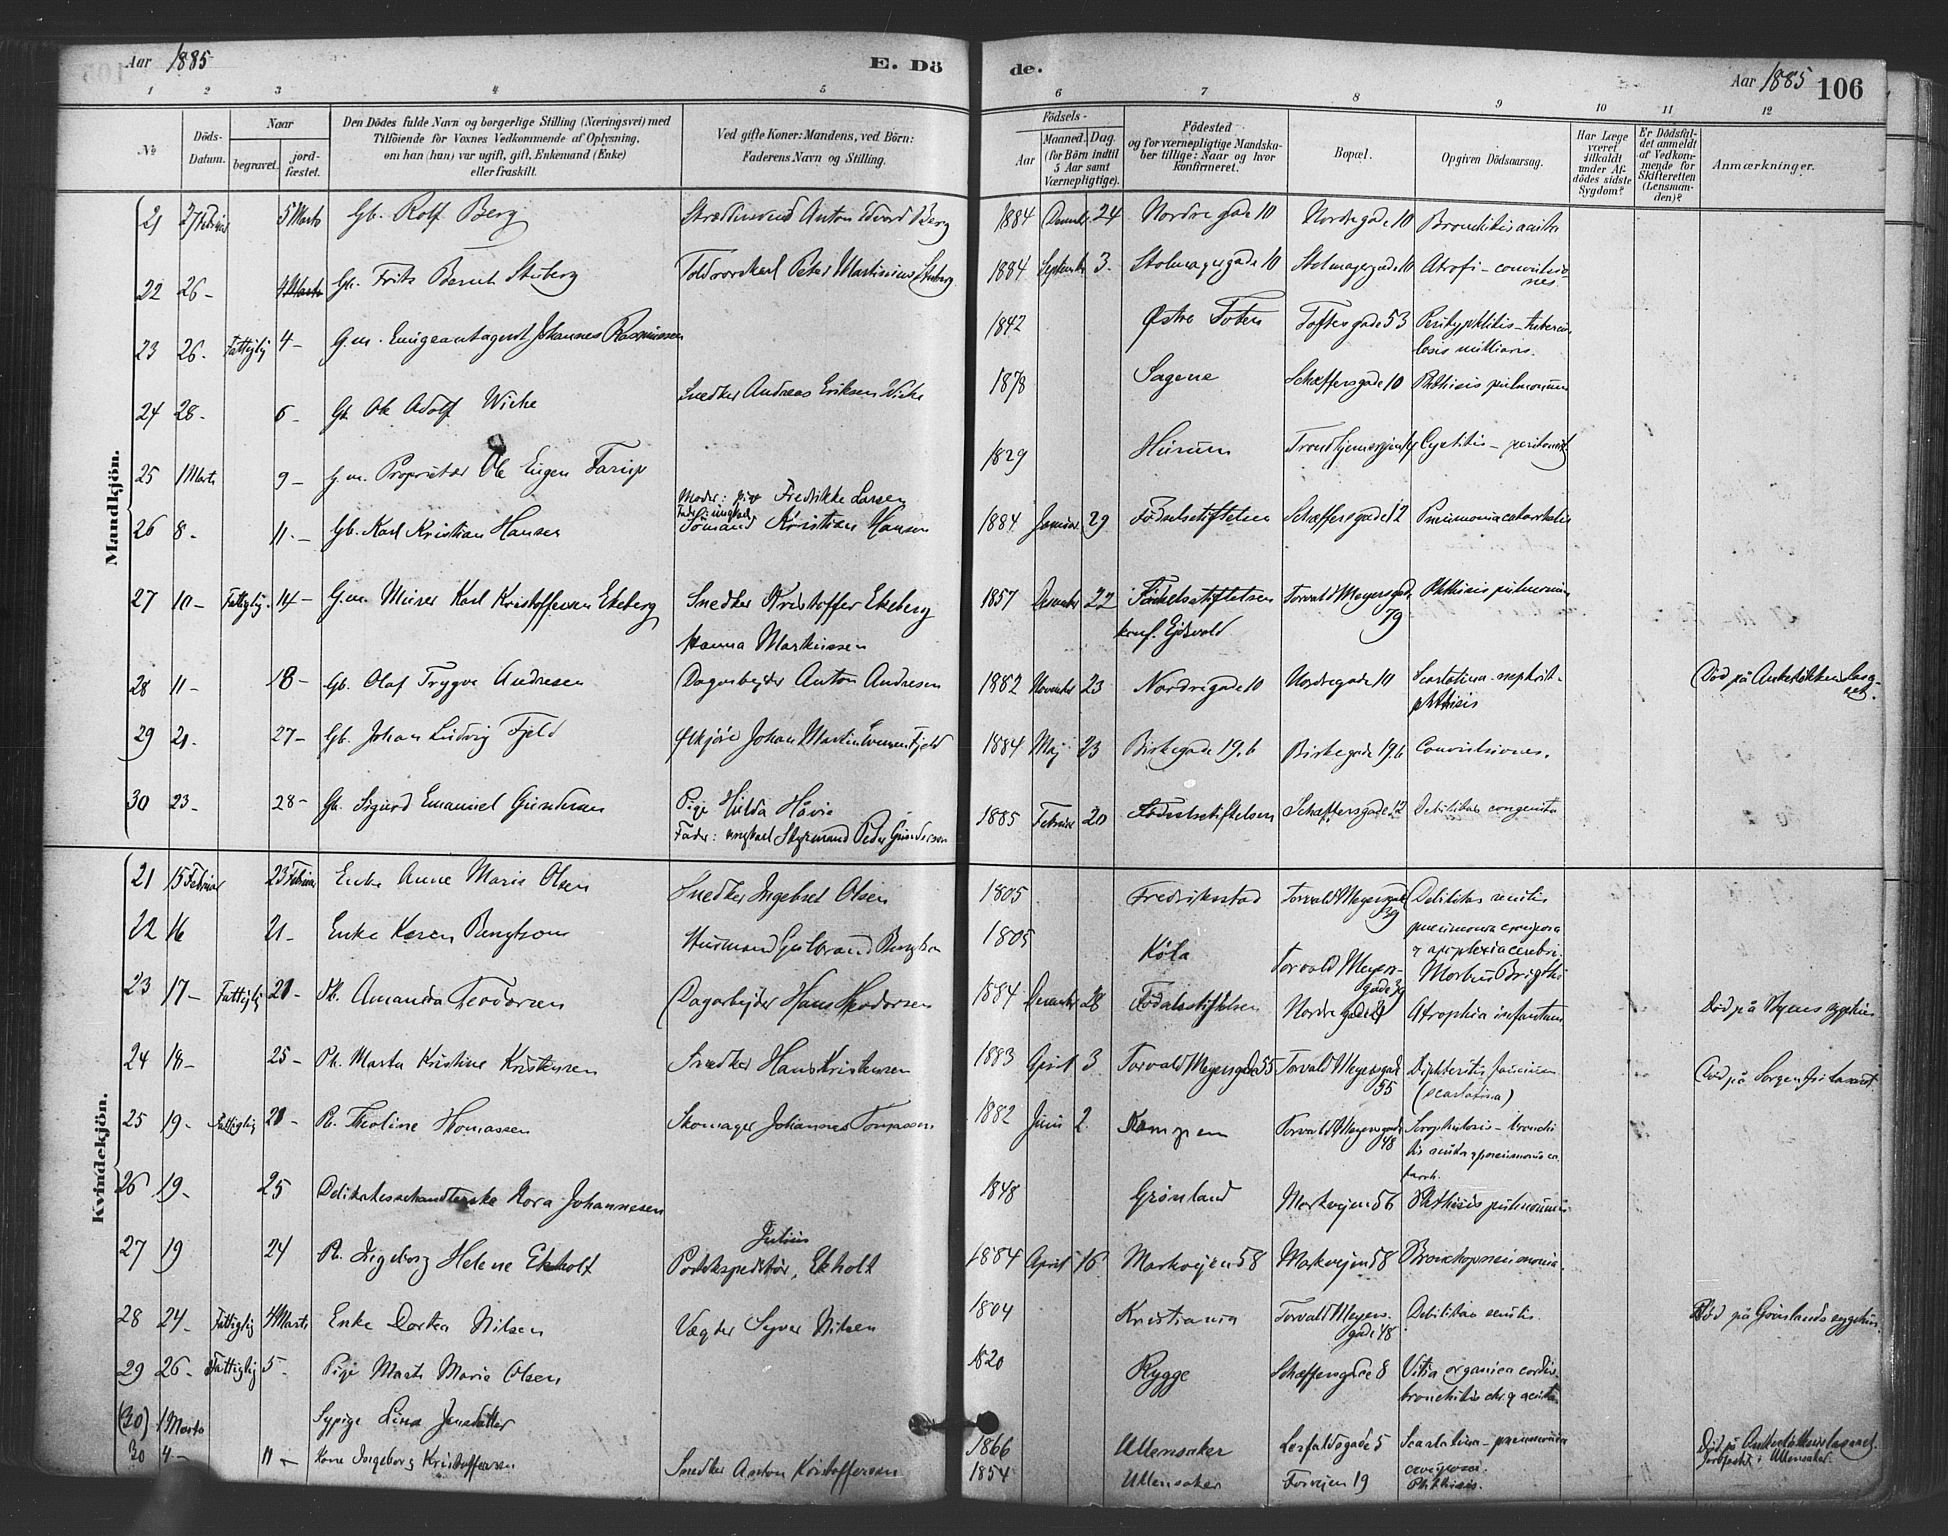 Aar 1885
E. Dö
de.
Aar 1885 106
1 2 3 4 5 6 7 8 9 10 11 12
No
Döds-Datum.
Naar
begravet.
jord-fæstet.
Den Dödes fulde Navn og borgerlige Stilling (Næringsvei) med
Tilföiende for Voxnes Vedkommende af Oplysning,
om han (hun) var ugift, gift, Enkemand (Enke)
eller fraskilt.
Ved gifte Koner: Mandens, ved Börn:
Faderens Navn og Stilling.
Födsels-
Aar
Maaned. Dag.
(for Börn indtil
5 Aar samt
Værnepligtige).
Födested
og for værnepligtige Mandska-
ber tillige: Naar og hvor
konfirmeret.
Bopæl.
Opgiven Dödsaarsag.
Har Læge
været
tilkaldt
under Af-
dödes sidste
Sygdom?
Er Dödsfal-
det anmeldt
af Vedkom-
mende for
Skifteretten
(Lensman-
den)?
Anmærkninger.
Mandkjön.
21 27 Februar 5 Marts Gb. Rolf Berg Anton Edvard Berg 1884 December 24 Nordre gade 10 Nordregade 10 Bronchitis acuta
22 26 - 4 Marts Gb. Frits Bernt Stuberg Peter Martinius Stuberg 1884 September 3. Stolmagergade 10 Stolmagergade 10 Atrofi - convulsio-
nes
23 26. Fattiglig 4 - G.m. Emigrantagent Johannes Rasmussen 1842 Østre Toten Toftesgade 53 Perityphlitis - tubercu-
losis miliaris.
24 28. 6 - Gb. Ole Adolf Wicke Snedker Andreas Eriksen Wicke 1878 Sagene Schæffersgade 10 Phthisis pulmonum
25 1 Marts 9 - G.m. Proprietær Ole Eugen 1829 Hurum Cystitis - peritonit
Moder: pige Fredrikke Larsen
Fader: ungkarl
26 8. 11. - Gb. Karl Kristian Hansen Sømand Kristian Hansen 1884 Januar 29 Fødselsstiftelsen Schæffersgade 12 Pneumonia catarrhalis
27 10 - Fattiglig. 14 - G.m. Murer Karl Kristoffersen Ekeberg Snedker Kristoffer Ekeberg 1857 December 22 Fødselsstiftelsen Torvald Meyersgade Phthisis pulmonum
79
Hanna Markussen konf. Ejdsvold
28 11 - 18 - Gb. Olaf Trygve Andresen Dagarbejder Anton Andresen 1882 November 23 Nordregade 10 Nordregade 10 Scarlatina - nephrit-
phthisis
Død på Ankerløkkens Lasa-
ret.
29 21. 27 - Gb. Johan Ludvig Fjeld Johan Martin Fjeld 1884 Maj 23 Birkegade 19.b Birkegade 19.b Convulsiones.
30 23 - 28 - Gb. Sigurd Emanuel Gundersen Pige Hilda 1885 Februar 20 Fødselsstiftelsen Schæffersgade 12 Debilitas congenita
Fader: ungkarl Styrmand Peder Gundersen
Kvindekjön.
21 15 Februar 23 Februar Enke Anne Marie Olsen Snedker Ingebret Olsen 1805 Fredriksstad Torvald Meyersgade Debilitas senilis
39
22 16 21 - Enke Karen Bengtson Husmand Gulbrand Bengtson 1805 Köla Torvald Meyers-
gade 39
pneumonia crouposa
& apoplexia cerebri
Morbus Brigthi
23 17 - Fattiglig 20 - Pb. Amanda Teodorsen Dagarbejder Hans Theodorsen 1884 December 28 Fødselsstiftelsen Nordre gade Atrophia infantum Død på
24 18 - 25 - Pb. Marta Kristine Kristensen Snedker Hans Kristensen 1883 April 3 Torvald Meyersgade 55 Torvald Meyersgade
55
Diphteritis faucium
(scarlatina)
Død på Sorgenfri Lasaret
25 19 - Fattiglig 20 - Pb. Theoline Thomassen Skomager Johannes Tomassen 1882 Juni 2 Kampen Torvald Meyersgade
48
Scrophulosis - bronchi-
tis acuta & pneumonia ca-
tarrh.
26 19. 25 Delikatessehandlerske Nora Johannesen 1848 Grønland Markvejen 56 Phthisis pulmonum
27 19 24 Pb. Ingeborg Helene Ekholt
Julius
Postekspeditør, Ekholt 1884 April 16 Markvejen 58 Markvejen 58 Bronchopneumonia.
28 24. Fattiglig 4 Marts Enke Dortea Nilsen Vægter Syver Nilsen 1804 Kristiania Torvald Meyers-
gade 48
Debilitas senilis. Død på Grønlands sygehus.
29 26 - Fattiglig 5 - Pige Marte Marie Olsen 1820 Rygge Schæffersgade 8 Vitia organica cordis-
bronchitis chr. & acuta
(30) 1 Marts Sypige Lina Jensdatter 1866 Ullensaker 5 Scarlatina - pneumonia
crouposa.
Død på Ankerløkkens Lasaret.
Jordfæstet i Ullensaker.
30 4 - 11 - Kone Ingeborg Kristoffersen Snedker Anton Kristoffersen 1854 Ullensaker Forvejen 19 Phthisis.